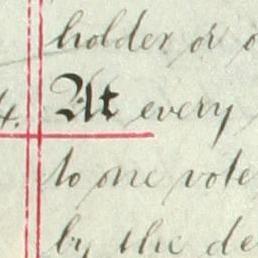 holder or
4. At every
to one vote
by the de